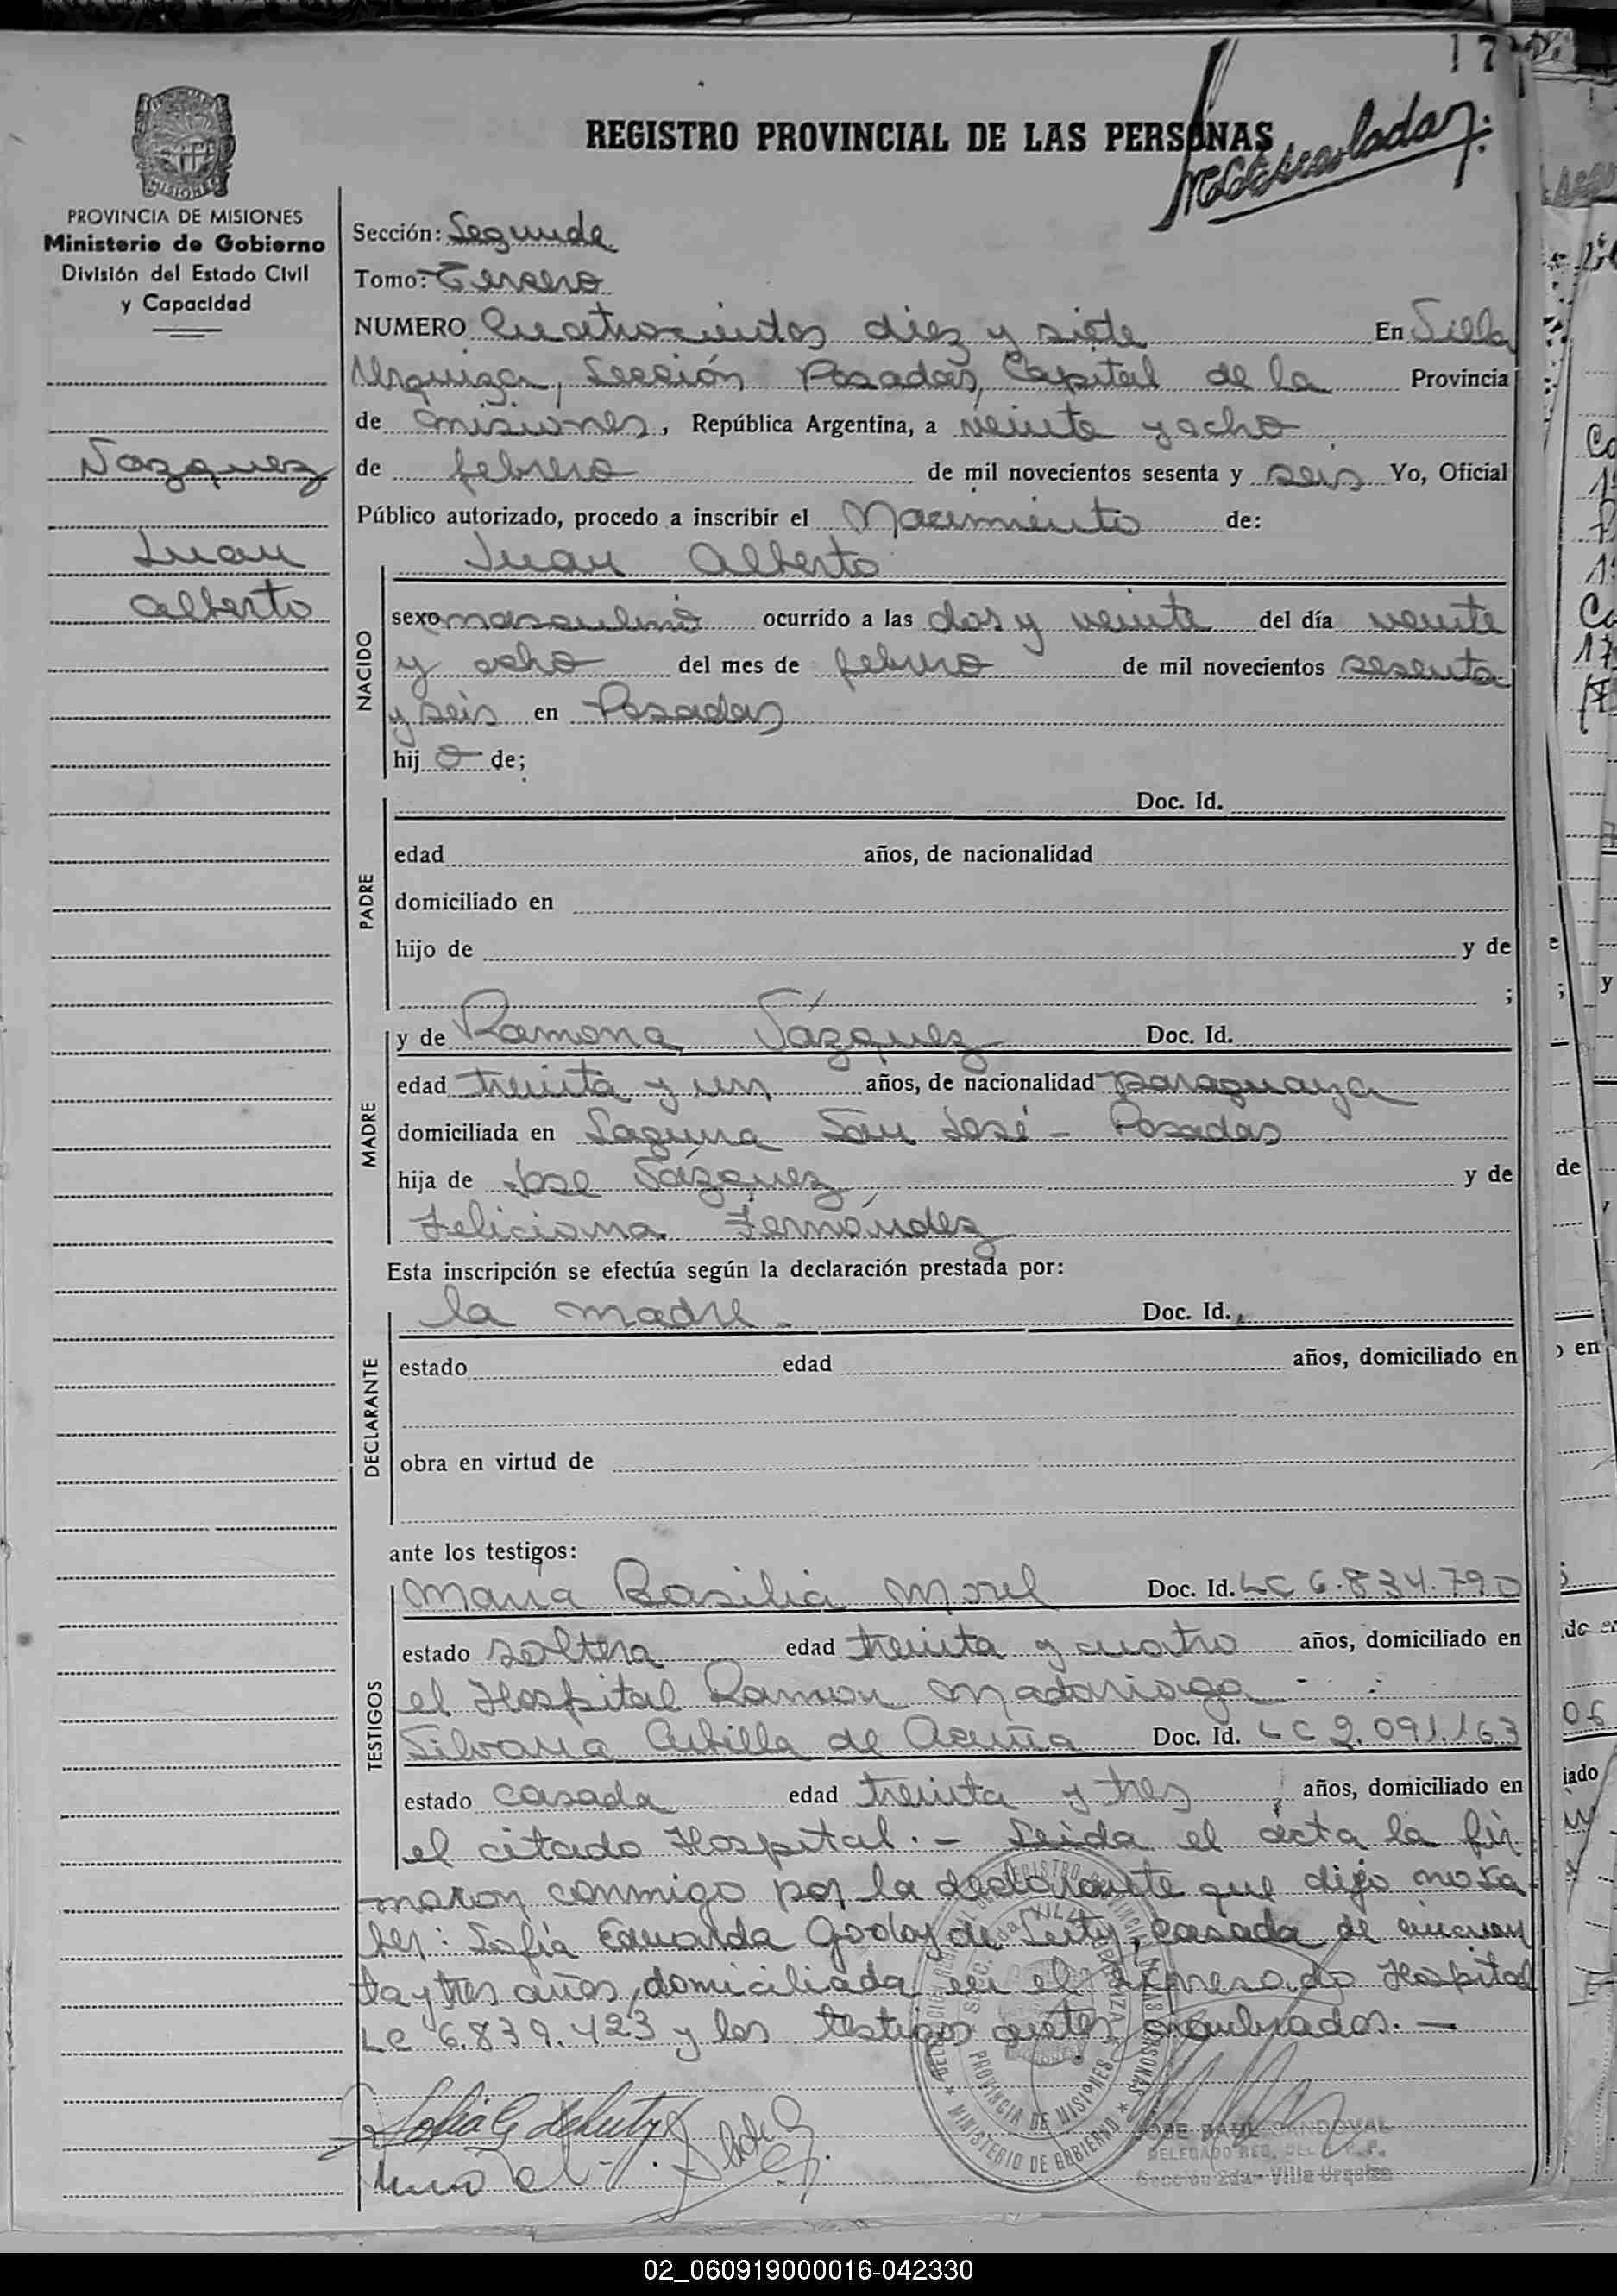 17
REGISTRO PROVINCIAL DE LAS PERSONAS
MISIONES
PROVINCIA DE MISIONES
Ministerio de Gobierno
División del Estado Civil
y Capacidad
Vazquez
Juan
Alberto
Sección: Segunda
Tomo: Tercero
NUMERO Cuatrocientos diez y siete En Villa
Urquiza, Sección Posadas, Capital de la Provincia
de Misiones, República Argentina, a veinte y ocho
de febrero de mil novecientos sesenta y seis Yo, Oficial
Público autorizado, procedo a inscribir el Nacimiento de:
NACIDO
Juan Alberto
sexo masculino ocurrido a las dos y veinte del día veinte
y ocho del mes de febrero de mil novecientos sesenta
y seis en Posadas
hij o de;
PADRE
Doc. Id.
edad años, de nacionalidad
domiciliado en
hijo de y de
;
MADRE
y de Ramona Vázquez Doc. Id.
edad treinta y un años, de nacionalidad paraguaya
domiciliada en Laguna San José - Posadas
hija de Jose Vázquez y de
Feliciana Fernández
Esta inscripción se efectúa según la declaración prestada por:
DECLARANTE
la madre. Doc. Id.
estado edad años, domiciliado en
obra en virtud de
ante los testigos:
TESTIGOS
Maria Basilia Morel Doc. Id. LC 6.834.790
estado soltera edad treinta y cuatro años, domiciliado en
el Hospital Ramon Madariaga
Silvana de Acuña Doc. Id. LC 2.091.163
estado casada edad treinta y tres años, domiciliado en
el citado Hospital. - Leida el acta la fir
maron conmigo por la declarante que dijo no sa
ber: Sofía Eduarda Godoy de casada de cincuen
ta y tres años, domiciliada en el expresado Hospital
LC 6.839.423 y los testigos antes nombrados. -
MINISTERIO DE GOBIERNO
PROVINCIA DE MISIONES
JOSE RAUL SANDOVAL
DELEGADO REG. DEL E. C. P.
Seccion 2da- Villa Urquiza
02_060919000016-042330